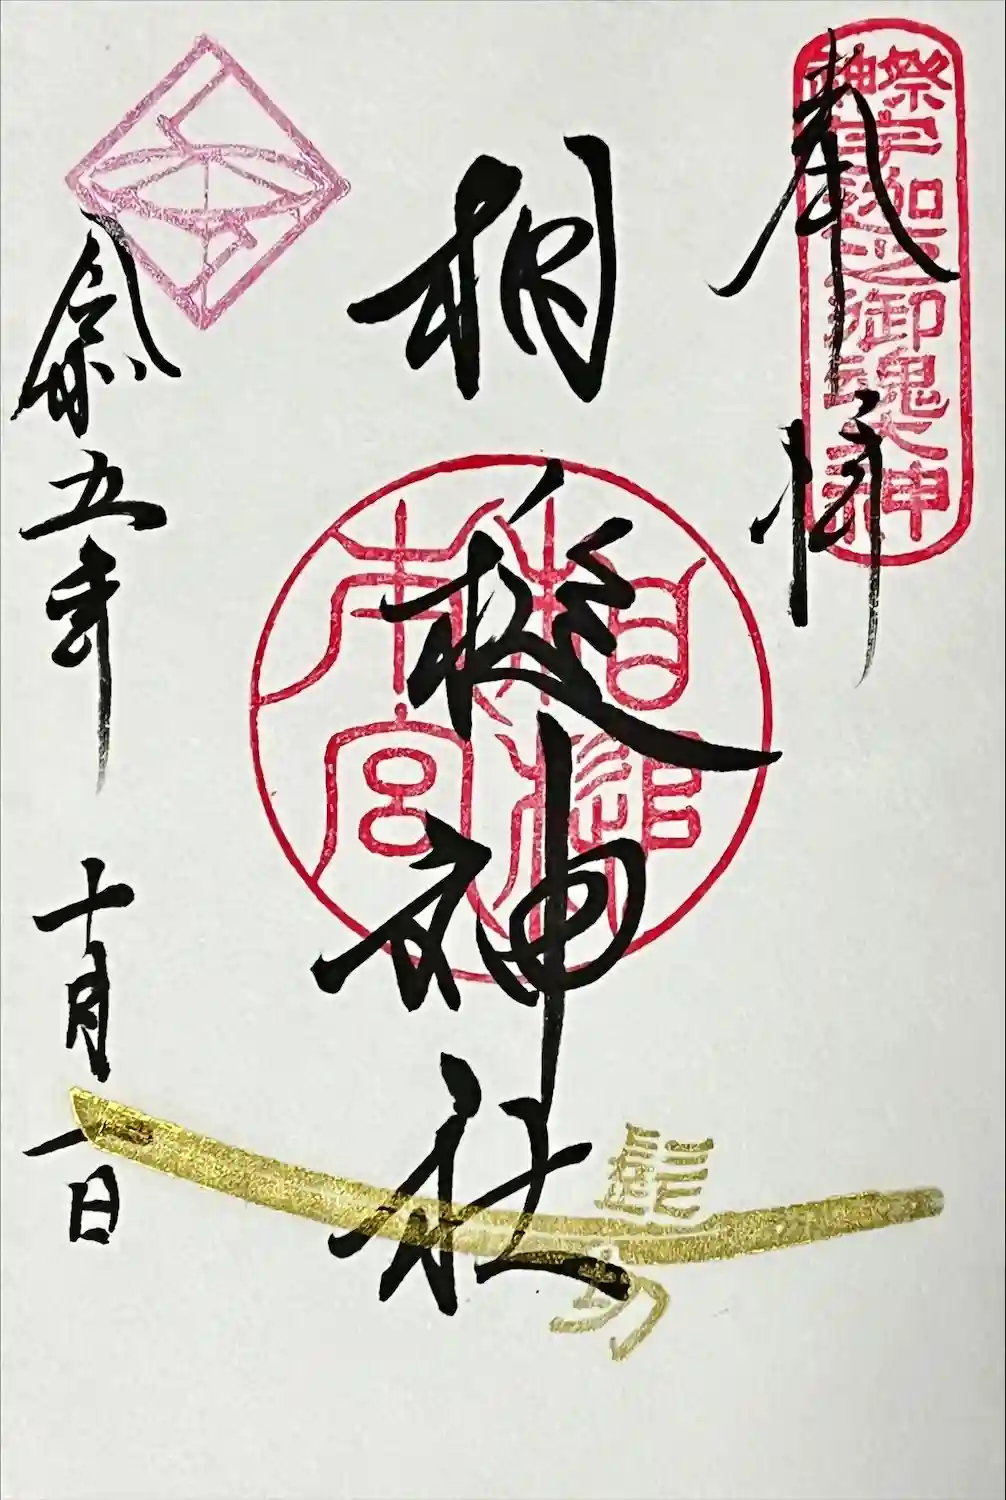 奉拝
祭神
宇迦之御魂大神
相槌神社
相槌
本宮
令和五年 十月一日
髭切